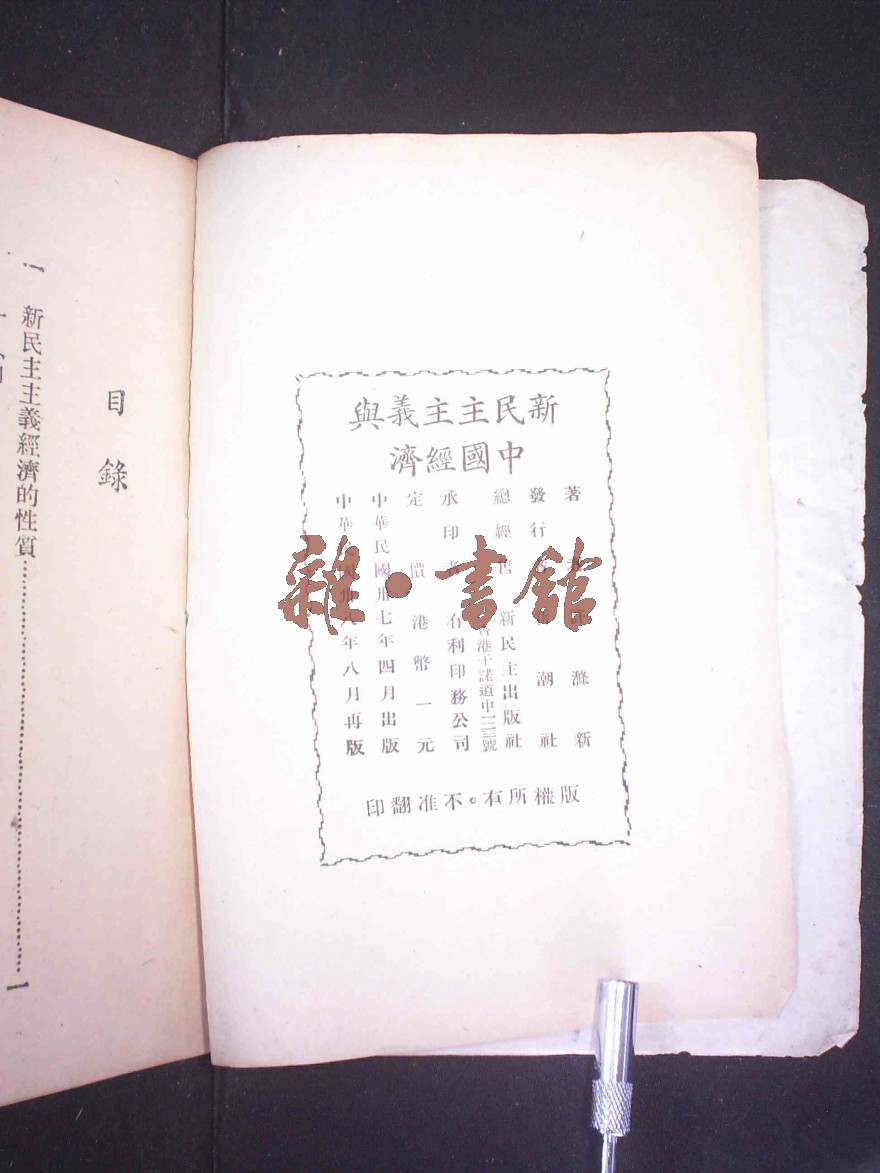 新民主主義與
中國經濟
著 者 許 滌 新
發行者 新潮社
總經售 新民主出版社
香港干諾道中一二三號
承印者 有利印務公司
定價 港幣一元
中華民國卅七年四月出版
中華民國卅八年八月再版
版權所有。不准翻印
雜·書館
目錄
一 新民主主義經濟的性質……一